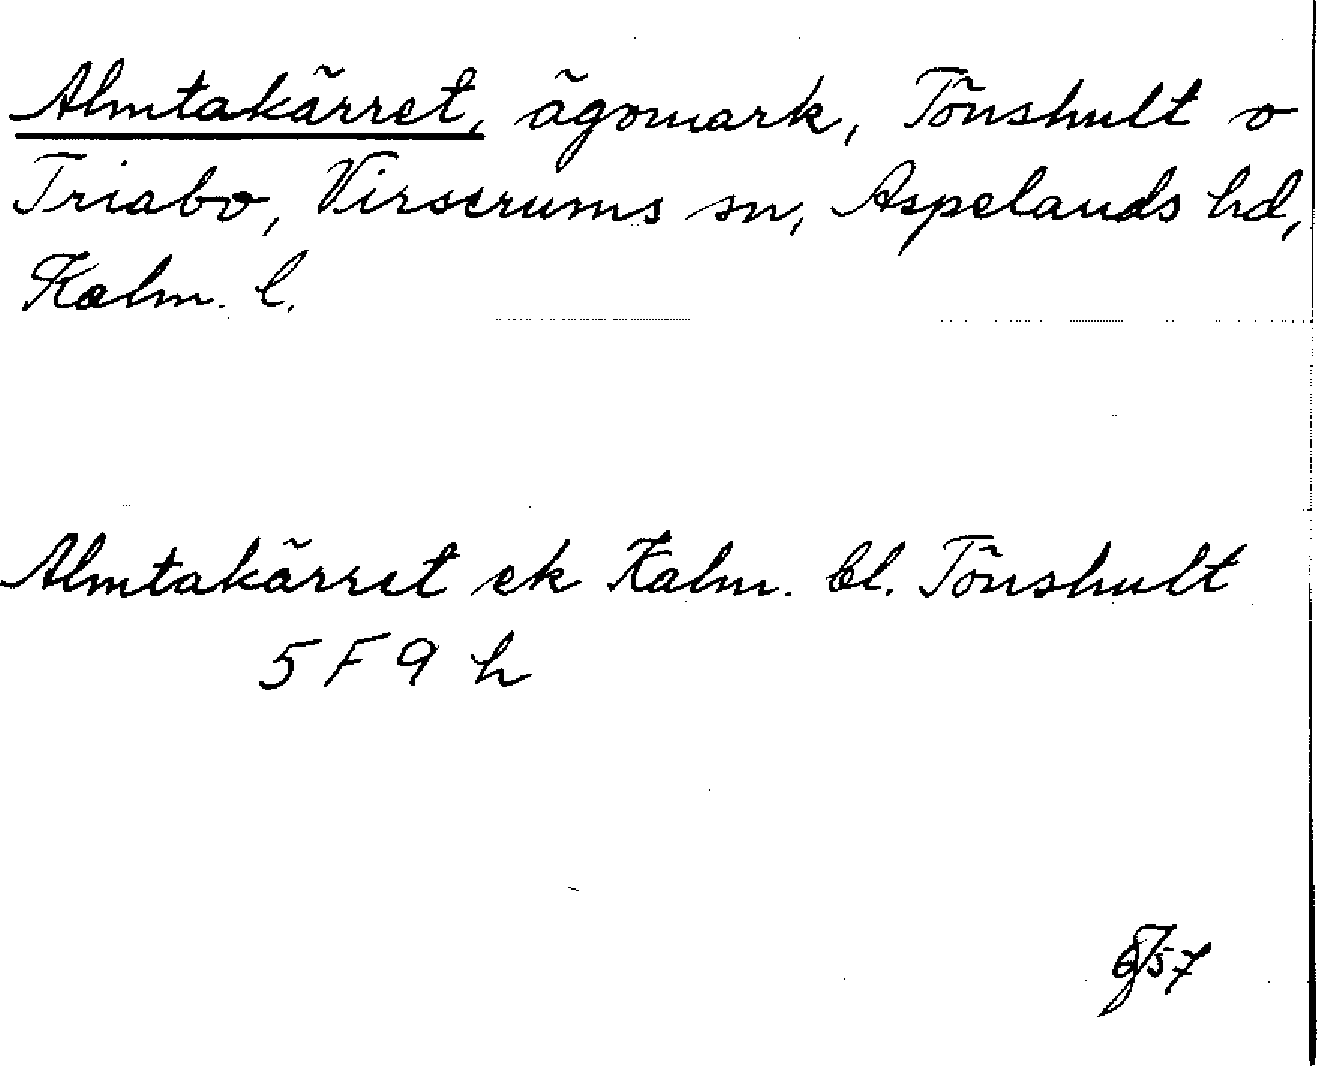 Almtakärret, ägomark, Tönshult o
Triabo, Virserums sn, Aspelands hd,
Kalm. l.
Almtakärret ek Kalm. bl. Tönshult
5 F 9 h
57